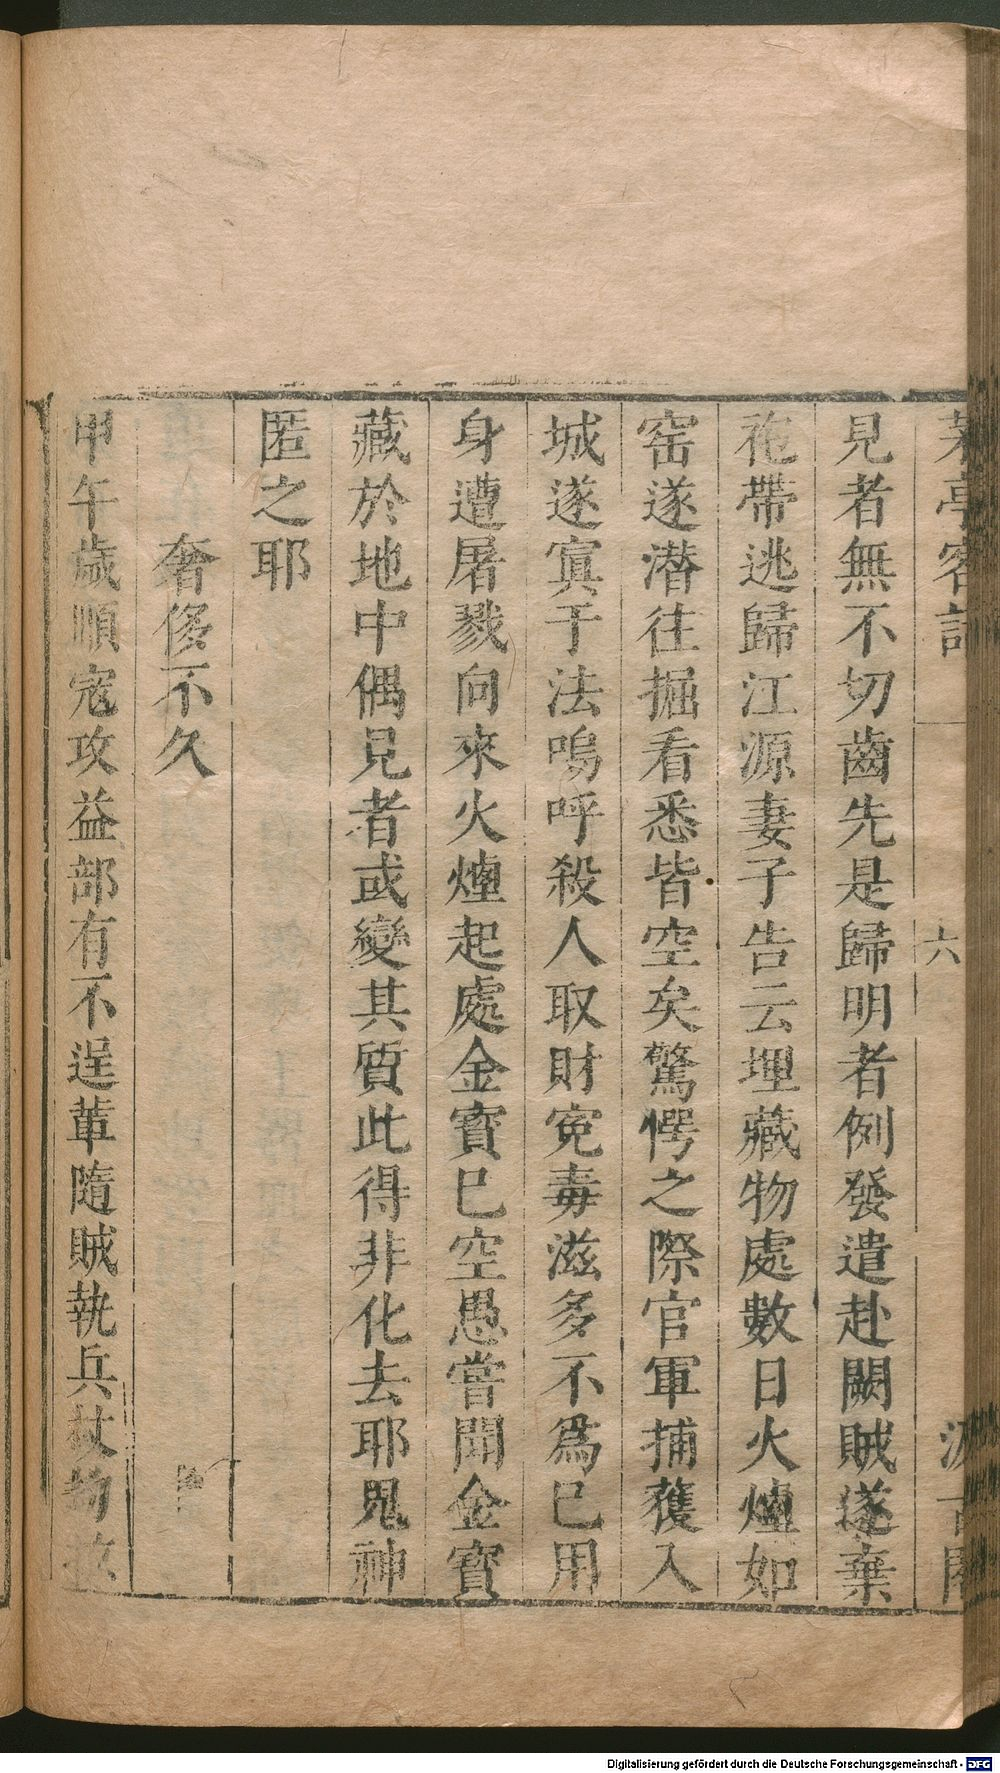 茅亭客話
六
汲古閣
見者無不切齒先是歸明者例發遣赴闕賊遂棄
袍帶逃歸江源妻子告云埋藏物處數日火煙如
窑遂潜往掘看悉皆空矣驚愕之際官軍捕獲入
城遂寘于法嗚呼殺人取財寃毒滋多不爲已用
身遭屠戮向來火煙起處金寳已空愚嘗聞金寳
藏於地中偶見者或變其質此得非化去耶鬼神
匿之耶
奢侈不久
甲午歲順寇攻益部有不逞輩隨賊執兵杖物
Digitalisierung gefördert durch die Deutsche Forschungsgemeinschaft - DFG